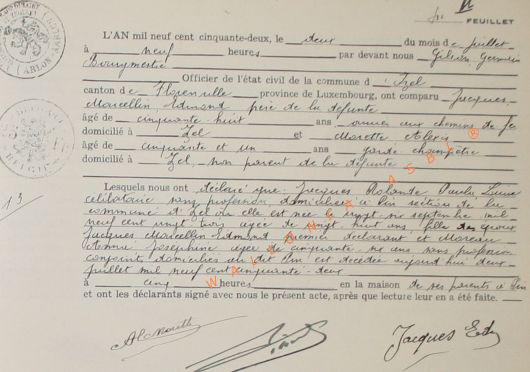 FEUILLET
L'AN mil neuf cent cinquante-deux, le deux du mois de juillet
à neuf heures par devant nous Gilson, Germain
Bourgmestre
Officier de l'état civil de la commune d'Izel
canton de Florenville province de Luxembourg, ont comparu Jacques,
Marcellin Edmond père de la défunte
âgé de cinquante huit ans ouvrier aux chemins de fer
domicilié à Izel et Marette Alexis
âgé de cinquante et un ans garde champêtre
domicilié à Izel, non parent de la défunte
Lesquels nous ont déclaré que Jacques Rolande Paula
célibataire sans profession, domiciliée à Pin section de la
commune d'Izel où elle est née le vingt neuf septembre mil
neuf cent vingt trois agée de vingt huit ans, fille des époux
Jacques Marcellin Edmond premier déclarant et Moreau
Joséphine agée de cinquante ans sans profession
conjoints domiciliés au dit Pin est décédée aujourd'hui deux
juillet mil neuf cent cinquante-deux
à cinq heures en la maison de ses parents à Pin
et ont les déclarants signé avec nous le présent acte, après que lecture leur en a été faite.
Jacques Ed